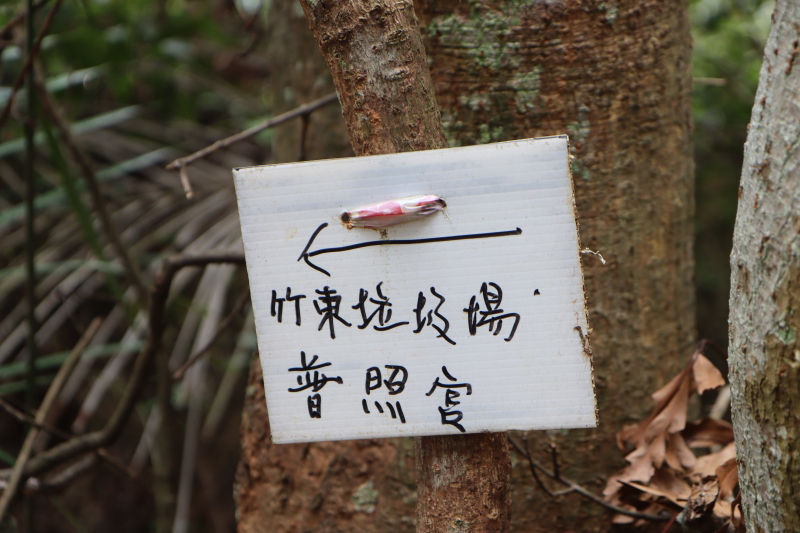 竹東垃圾場
普照宮